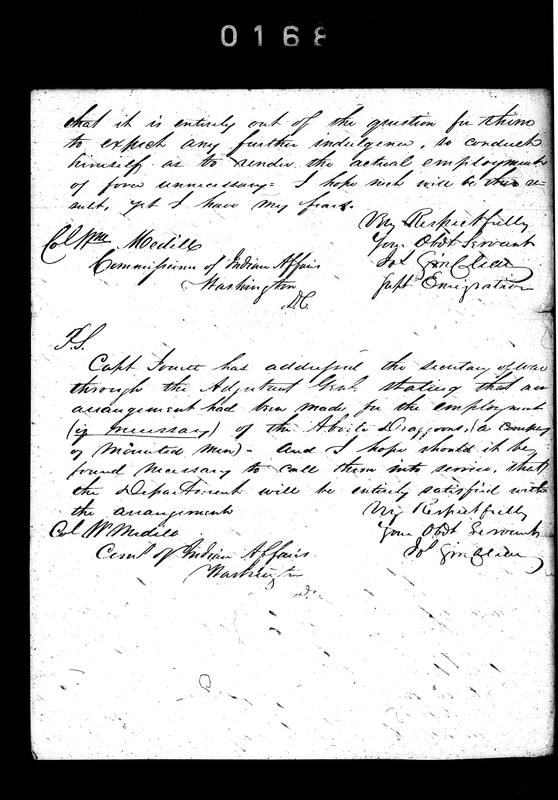 0168
that it is entirely out of the question for them
to expect any further indulgence, so conduct
himself as to render the actual employment
of force unnecessary= I hope such will be the re
sult, yet I have my fears.
Very Respectfully
Col Wm Medill
Your Obdt Servant
Commissioner of Indian Affairs
Jos Sinclear
Washington
Supt Emigration
D.C.
P.S.
Capt Jouett has addressed the secretary of War
through the Adjutant Genl. stating that an
arrangement had been made for the employment
(if necessary) of the Aboite Dragoons, (a company
of Mounted Men)- And I hope should it be
found necessary to call them into service, that
the Department will be entirely satisfied with
the arrangement
Very Respectfully
Col W Medill
Your Obdt Servant
Coml of Indian Affairs
Jos Sinclear
Washington
D.